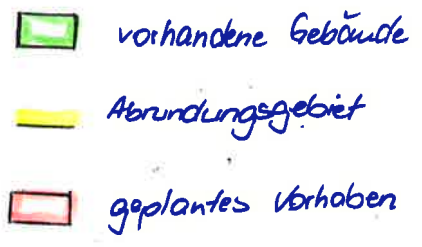 vorhandene Gebäude
Abrundungsgebiet
geplantes Vorhaben